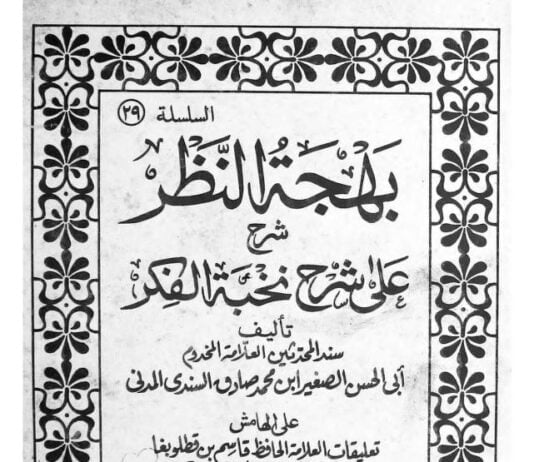 السلسلة ٢٩
بَهْجَةُ النَّظَر
شرح
على شرح نخبة الفكر
تأليف
سند المحدثين العلّامة المخدوم
أبى الحسن الصغير ابن محمد صادق السندى المدنى
على الهامش
تعليقات العلامة الحافظ قاسم بن قطلوبغا